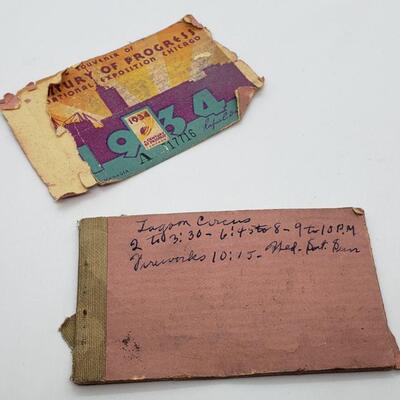 SOUVENIR OF
TURY OF PROGRESS
NATIONAL EXPOSITION CHICAGO
1934
1934
A 17716
Lagoon Circus
2 to 3:30 - 6:45 to 8 - 9 to 10 P.M
Fireworks 10:15 - Wed. Sat. Sun